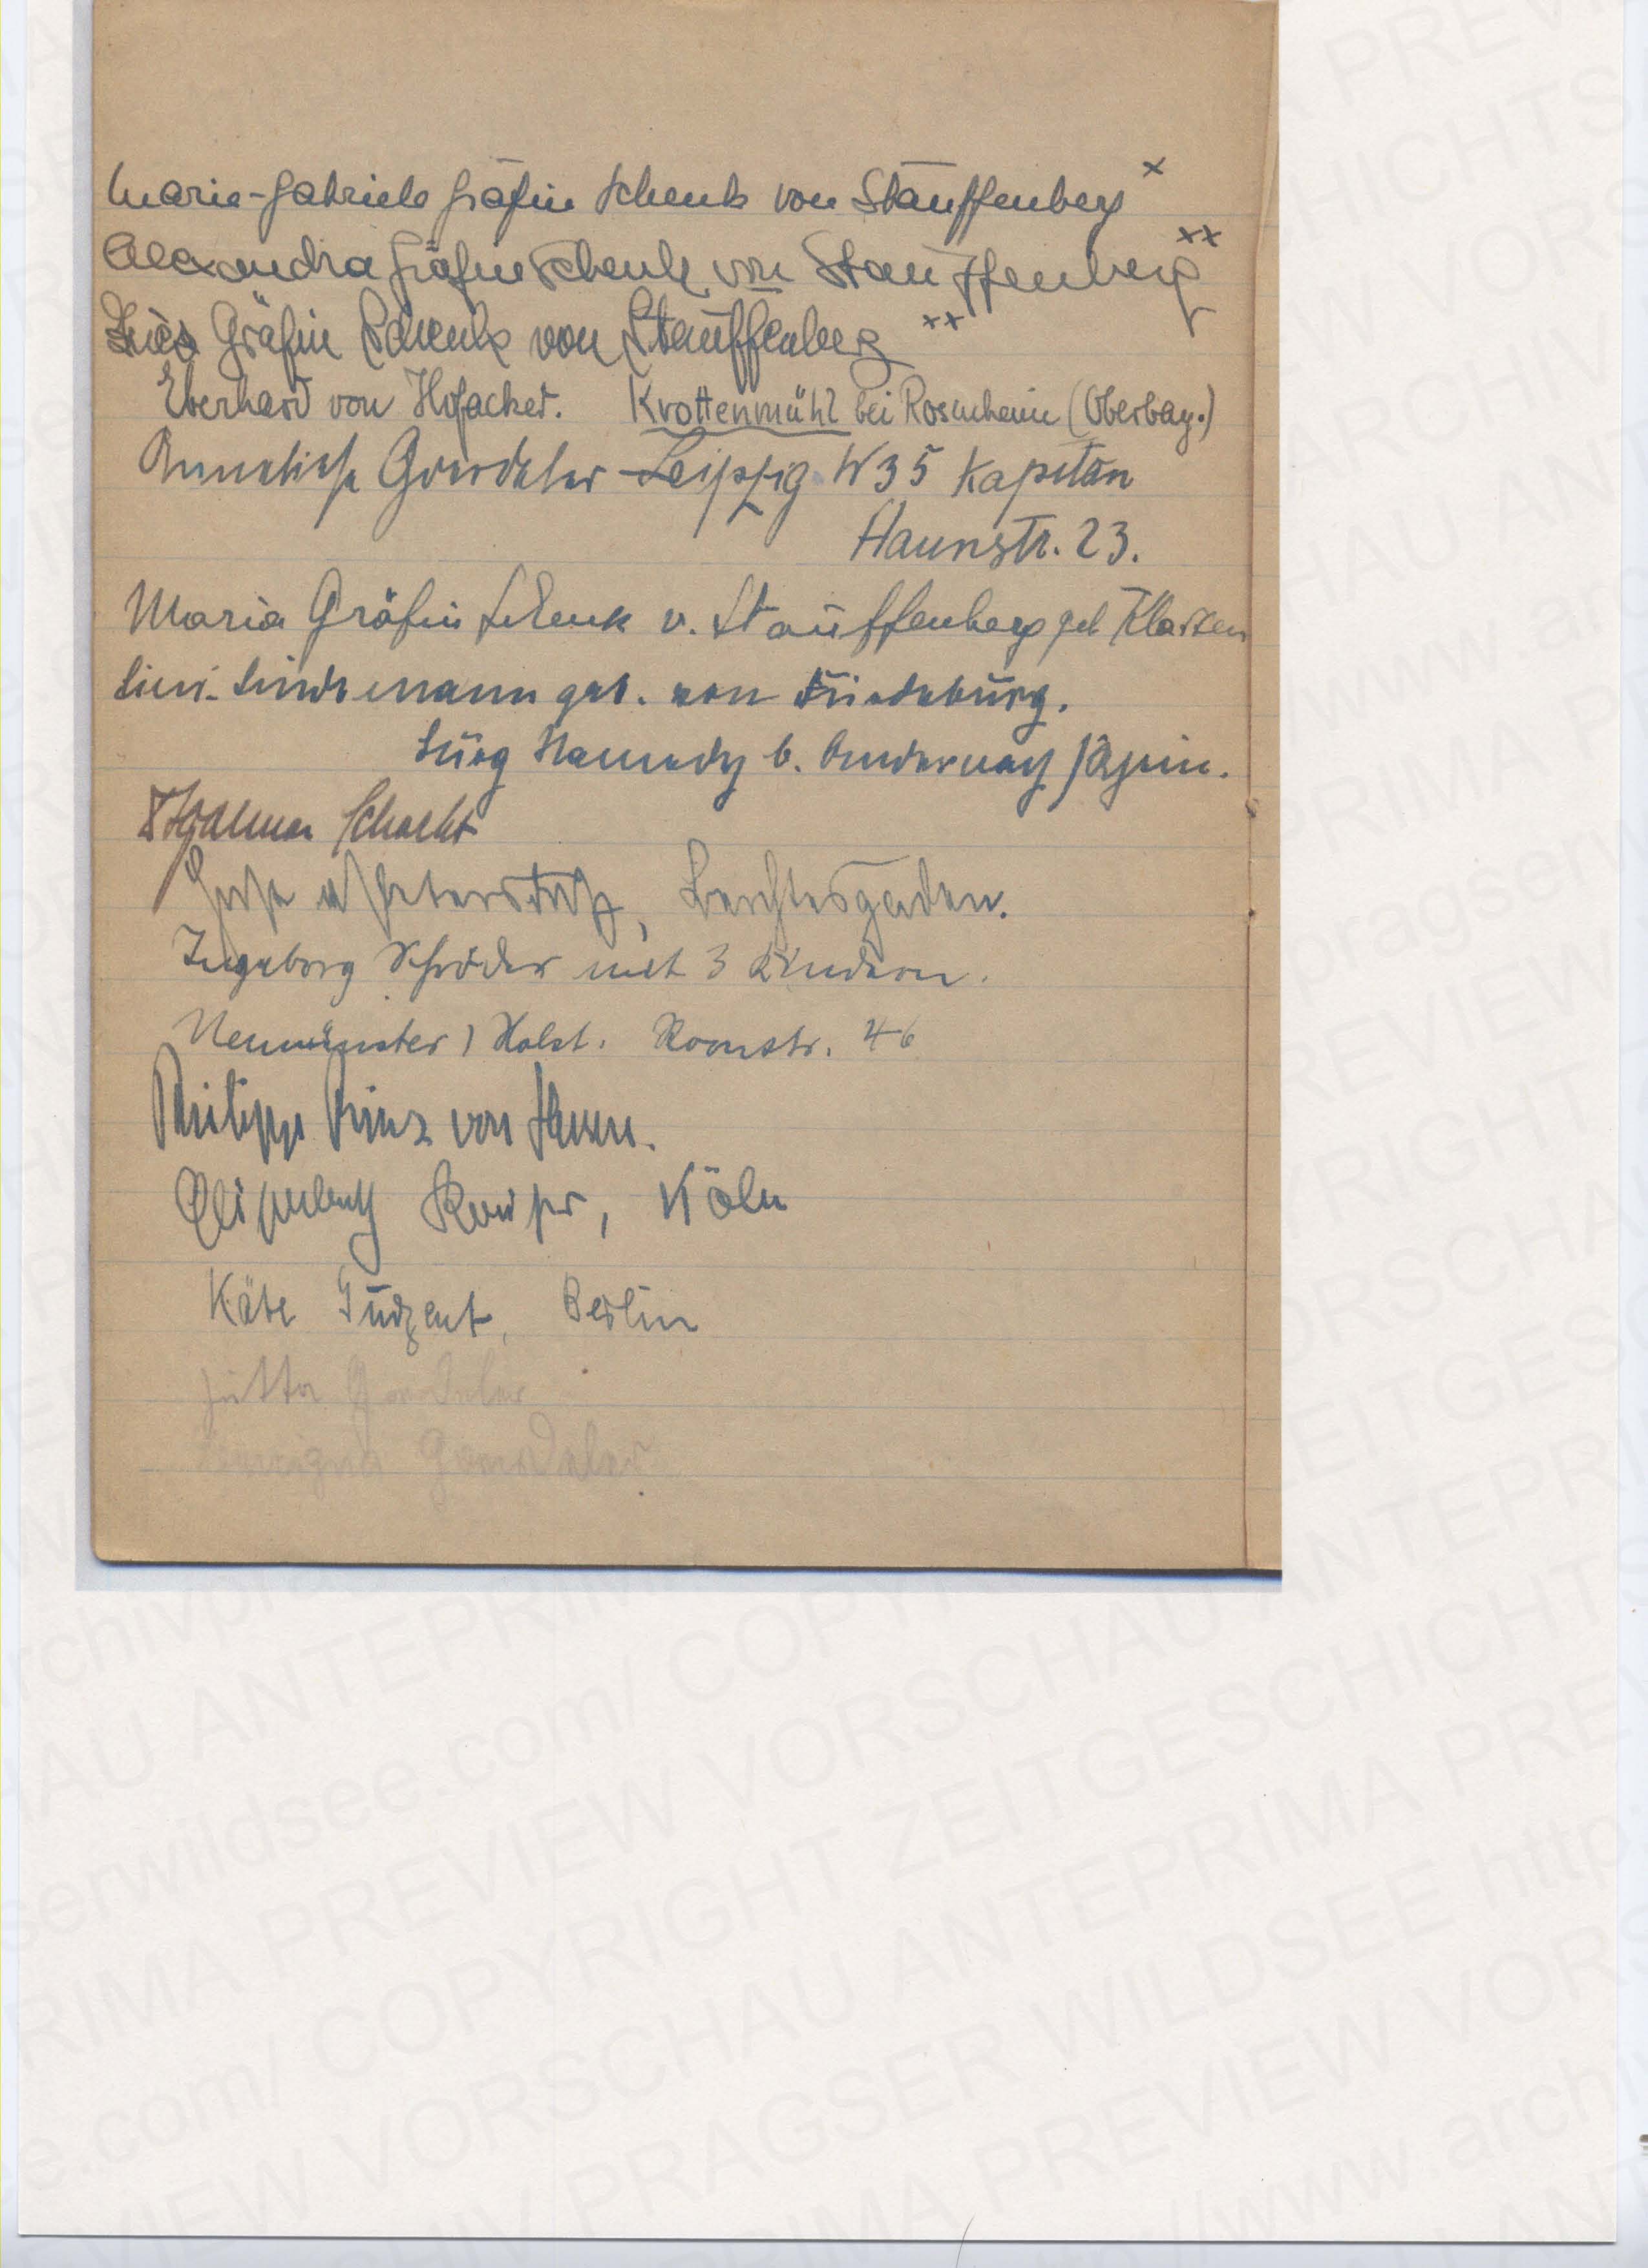 Marie-Gabriele Gräfin Schenk von Stauffenberg x
Alexandra Gräfin Schenk von Stauffenberg xx
Inès Gräfin Schenk von Stauffenberg xx
Eberhard von Hofacker. Krottenmühl bei Rosenheim (Oberbay.)
Anneliese Goerdeler Leipzig W35 Kapitän
Haunstr. 23.
Maria Gräfin Schenk v. Stauffenberg geb Classen
Lini Lindemann geb. von Friedeburg.
Burg Namedy b. Andernach / Rhein.
Hjalmar Schacht
Berchtesgaden.
Ingeborg Schröder mit 3 Kindern.
Neumünster / Holst. Roonstr. 46
Philipp Prinz von Hessen.
Elisabeth Kaiser, Köln
Käte Gudzent, Berlin
Jutta Goerdeler
Benigna Goerdeler